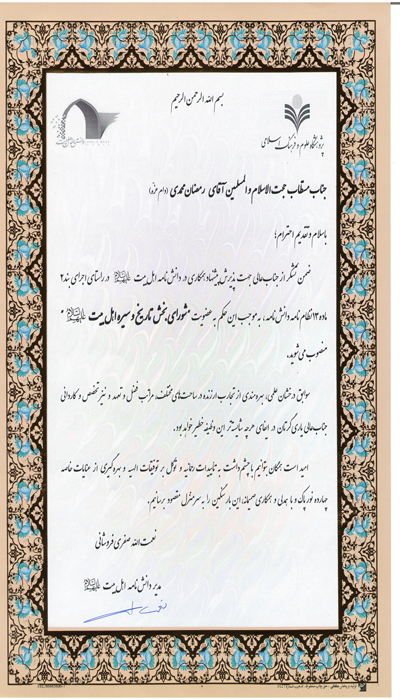 بسم الله الرحمن الرحیم
پژوهشگاه علوم و فرهنگ اسلامی
جناب مستطاب حجت الاسلام و المسلمین آقای رمضان محمدی (دام عزه)
باسلام و تقدیم احترام؛
ضمن تشکر از جنابعالی جهت پذیرش پیشنهاد همکاری در دانش نامه اهل بیت علیهم السلام در راستای اجرای بند ۲
ماده ۱۳ نظام نامه دانش نامه، به موجب این حکم به عضویت «شورای بخش تاریخ و سیره اهل بیت علیهم السلام»
منصوب می شوید.
سوابق درخشان علمی، بهره مندی از تجارب ارزنده در ساحت های مختلف، مراتب فضل و تعهد و نیز تخصص و کاردانی
جنابعالی یاری گرتان در ایفای هرچه شایسته تر این وظیفه خطیر خواهد بود.
امید است همگان بتوانیم با چشم داشت به تاییدات ربانیه و توکل بر توفیقات الهیه و بهره گیری از عنایات خاصه
چهارده نور پاک و با همدلی و همکاری صمیمانه، این بار سنگین را به سرمنزل مقصود برسانیم.
نعمت الله صفری فروشانی
مدیر دانش نامه اهل بیت علیهم السلام